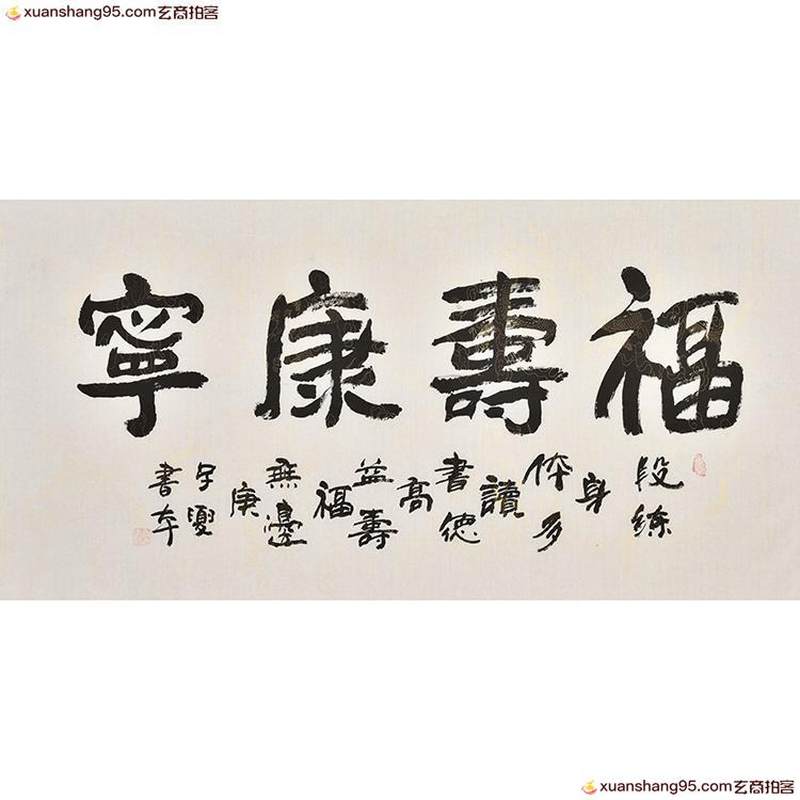 xuanshang95.com玄商拍客
福壽康寧
段練
身
体多
讀
書德
高
益壽
福
無邊
庚
子夏
書
xuanshang95.com玄商拍客